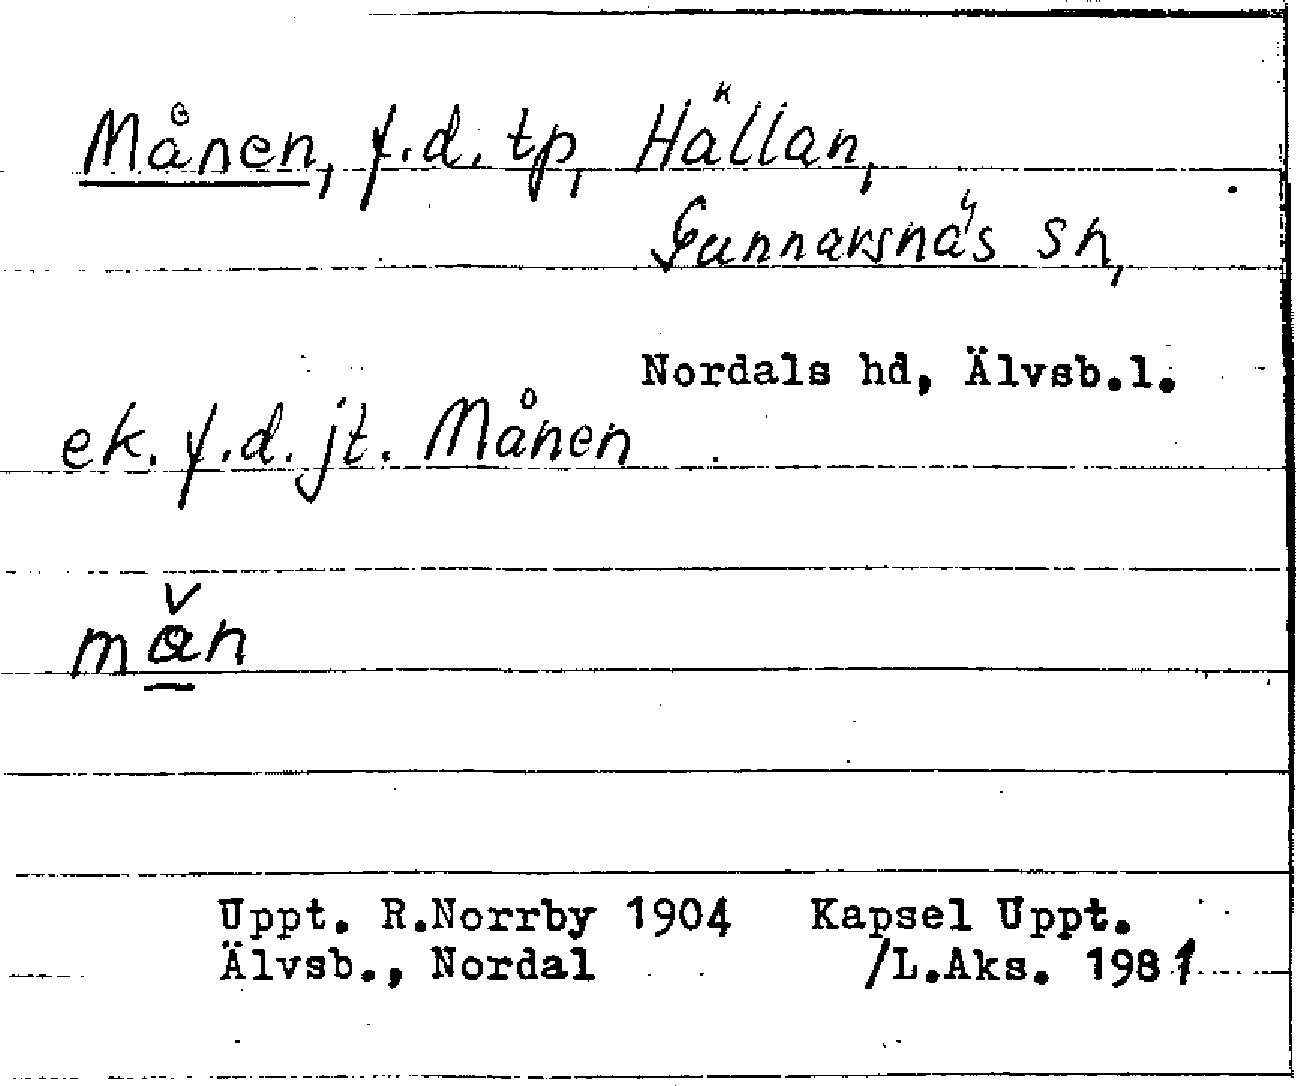 Månen, f.d. tp, Hällan,
Gunnarsnäs sn,
Nordals hd, Älvsb.l.
ek. f.d. jt. Månen
Uppt. R.Norrby 1904 Kapsel Uppt.
Älvsb., Nordal /L.Aks. 1981